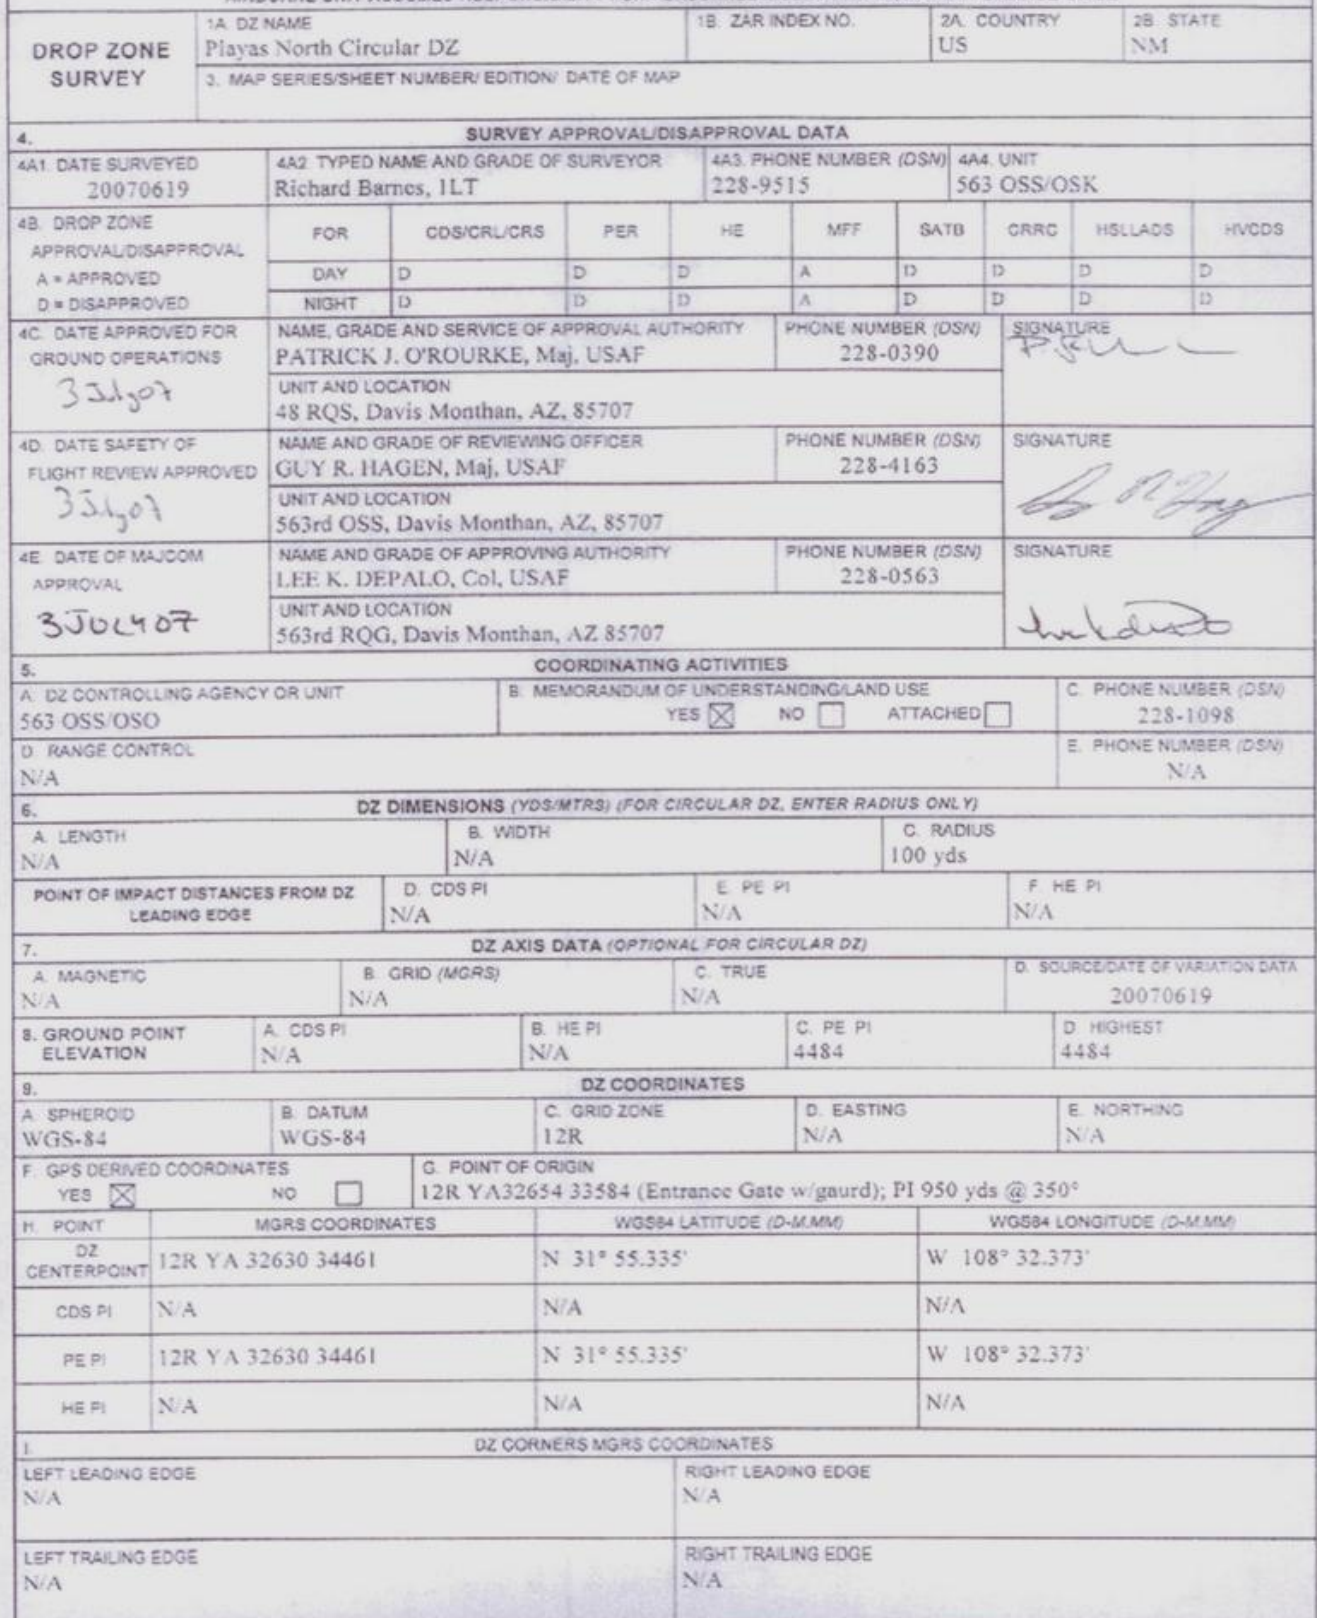 DROP ZONE SURVEY
1A. DZ NAME
Playas North Circular DZ
1B. ZAR INDEX NO.
2A. COUNTRY
US
2B. STATE
NM
3. MAP SERIES/SHEET NUMBER/ EDITION/ DATE OF MAP
4. SURVEY APPROVAL/DISAPPROVAL DATA
4A1. DATE SURVEYED
20070619
4A2. TYPED NAME AND GRADE OF SURVEYOR
Richard Barnes, 1LT
4A3. PHONE NUMBER (DSN)
228-9515
4A4. UNIT
563 OSS/OSK
4B. DROP ZONE
APPROVAL/DISAPPROVAL
A = APPROVED
D = DISAPPROVED
FOR CDS/CRL/CRS PER HE MFF SATB CRRC HSLLADS HVCDS
DAY D D D A D D D D
NIGHT D D D A D D D D
4C. DATE APPROVED FOR
GROUND OPERATIONS
3 July 07
NAME, GRADE AND SERVICE OF APPROVAL AUTHORITY
PATRICK J. O'ROURKE, Maj, USAF
PHONE NUMBER (DSN)
228-0390
SIGNATURE
UNIT AND LOCATION
48 RQS, Davis Monthan, AZ, 85707
4D. DATE SAFETY OF
FLIGHT REVIEW APPROVED
3 July 07
NAME AND GRADE OF REVIEWING OFFICER
GUY R. HAGEN, Maj, USAF
PHONE NUMBER (DSN)
228-4163
SIGNATURE
UNIT AND LOCATION
563rd OSS, Davis Monthan, AZ, 85707
4E. DATE OF MAJCOM
APPROVAL
3JULY07
NAME AND GRADE OF APPROVING AUTHORITY
LEE K. DEPALO, Col, USAF
PHONE NUMBER (DSN)
228-0563
SIGNATURE
UNIT AND LOCATION
563rd RQG, Davis Monthan, AZ 85707
5. COORDINATING ACTIVITIES
A. DZ CONTROLLING AGENCY OR UNIT
563 OSS/OSO
B. MEMORANDUM OF UNDERSTANDING/LAND USE
YES ☒ NO ☐ ATTACHED ☐
C. PHONE NUMBER (DSN)
228-1098
D. RANGE CONTROL
N/A
E. PHONE NUMBER (DSN)
N/A
6. DZ DIMENSIONS (YDS/MTRS) (FOR CIRCULAR DZ, ENTER RADIUS ONLY)
A. LENGTH
N/A
B. WIDTH
N/A
C. RADIUS
100 yds
POINT OF IMPACT DISTANCES FROM DZ
LEADING EDGE
D. CDS PI
N/A
E. PE PI
N/A
F. HE PI
N/A
7. DZ AXIS DATA (OPTIONAL FOR CIRCULAR DZ)
A. MAGNETIC
N/A
B. GRID (MGRS)
N/A
C. TRUE
N/A
D. SOURCE/DATE OF VARIATION DATA
20070619
8. GROUND POINT
ELEVATION
A. CDS PI
N/A
B. HE PI
N/A
C. PE PI
4484
D. HIGHEST
4484
9. DZ COORDINATES
A. SPHEROID
WGS-84
B. DATUM
WGS-84
C. GRID ZONE
12R
D. EASTING
N/A
E. NORTHING
N/A
F. GPS DERIVED COORDINATES
YES ☒ NO ☐
G. POINT OF ORIGIN
12R YA32654 33584 (Entrance Gate w/gaurd); PI 950 yds @ 350°
H. POINT MGRS COORDINATES WGS84 LATITUDE (D-M.MM) WGS84 LONGITUDE (D-M.MM)
DZ CENTERPOINT 12R YA 32630 34461 N 31° 55.335' W 108° 32.373'
CDS PI N/A N/A N/A
PE PI 12R YA 32630 34461 N 31° 55.335' W 108° 32.373'
HE PI N/A N/A N/A
I. DZ CORNERS MGRS COORDINATES
LEFT LEADING EDGE
N/A
RIGHT LEADING EDGE
N/A
LEFT TRAILING EDGE
N/A
RIGHT TRAILING EDGE
N/A